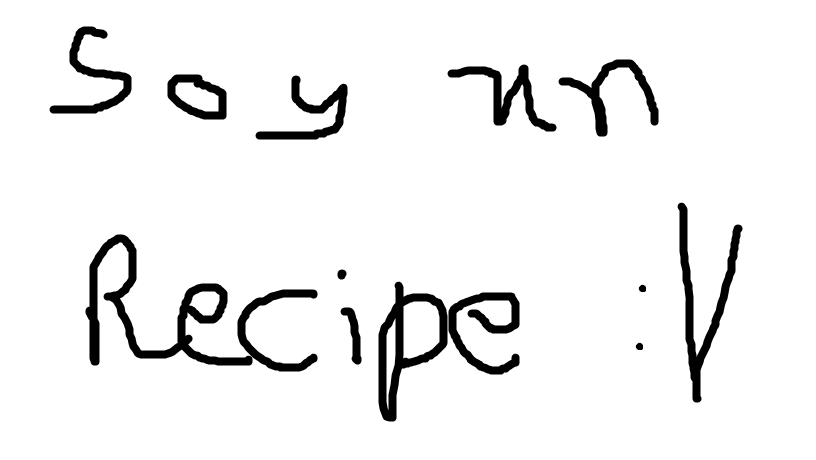 Soy un
Recipe :V